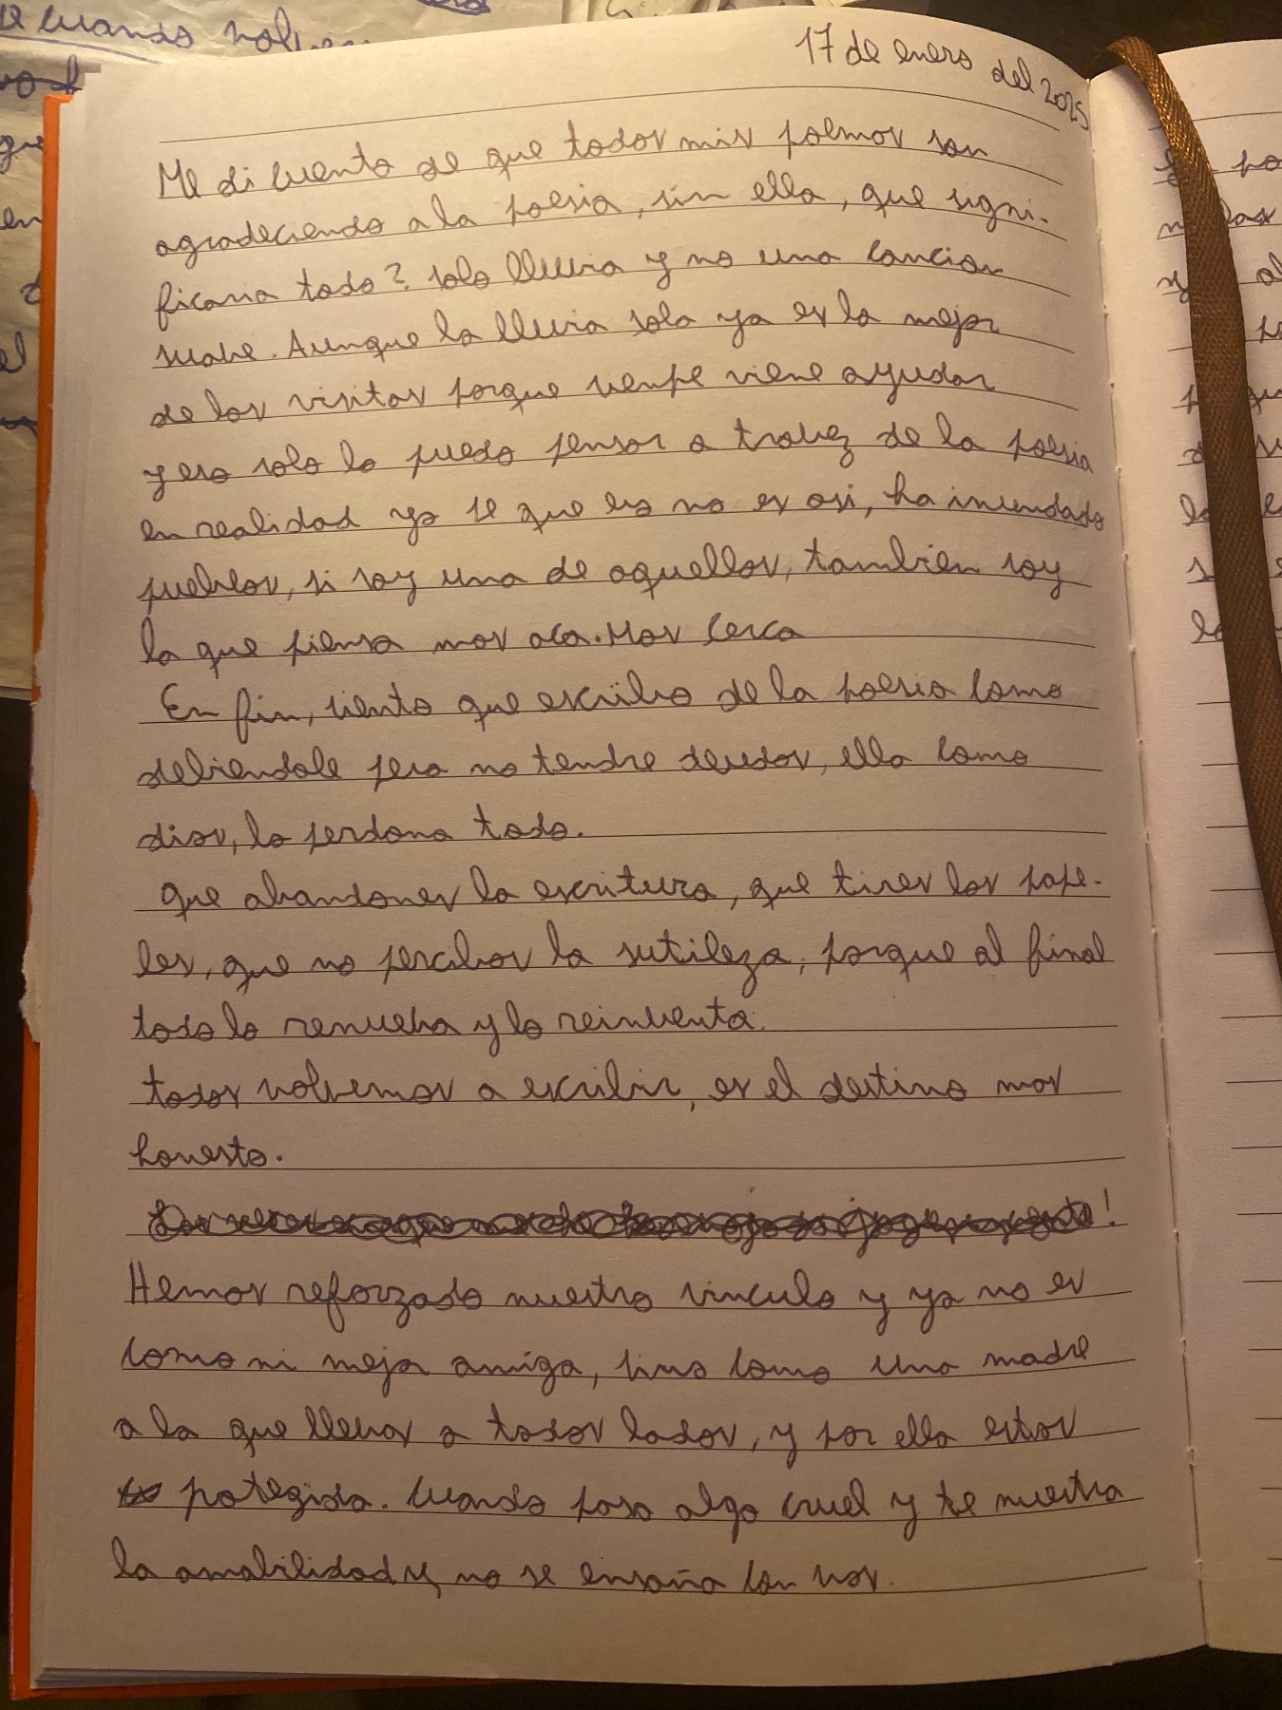 17 de enero del 2025
Me di cuenta de que todos mis poemas son
agradeciendo a la poesia, sin ella, que signi-
ficaria todo? solo lluvia y no una cancion
suave. Aunque la lluvia sola ya es la mejor
de las visitas porque siempe viene ayudar
y eso solo lo puedo pensar a travez de la poesia
en realidad yo se que eso no es asi, ha inundado
pueblos, si soy una de aquellos, tambien soy
la que piensa mas aca. Mas cerca
En fin, siento que escribo de la poesia como
debiendole pero no tendre deudas, ella como
dios, lo perdona todo.
Que abandones la escritura, que tires los pape-
les, que no percibas la sutileza, porque al final
todo lo renueba y lo reinventa.
todos volvemos a escribir, es el destino mas
honesto.
Hemos reforzado nuestro vinculo y ya no es
como mi mejor amiga, sino como una madre
a la que llevas a todos lados, y por ella estas
potegida. Cuando pasa algo cruel y te muestra
la amabilidad y, no se ensaña con vos.